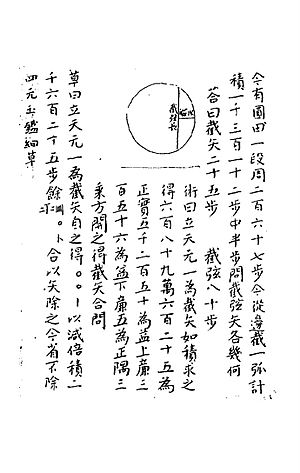 今有圓田一段周二百六十七步今從邊截一弧計
積一千三百一十二步中半步問截弦矢各幾何
答曰截矢二十五步　截弦八十步
截弦長
術曰立天元一為截矢如積求之
得六百八十九萬六百二十五為
正實五千二百五十為益上廉三
百五十六為益下廉五為正隅三
乘方開之得截矢合問
草曰立天元一為截矢自之得。。|以減倍積二
千六百二十五步餘 合以矢除之今省不除
四元玉鑑細草